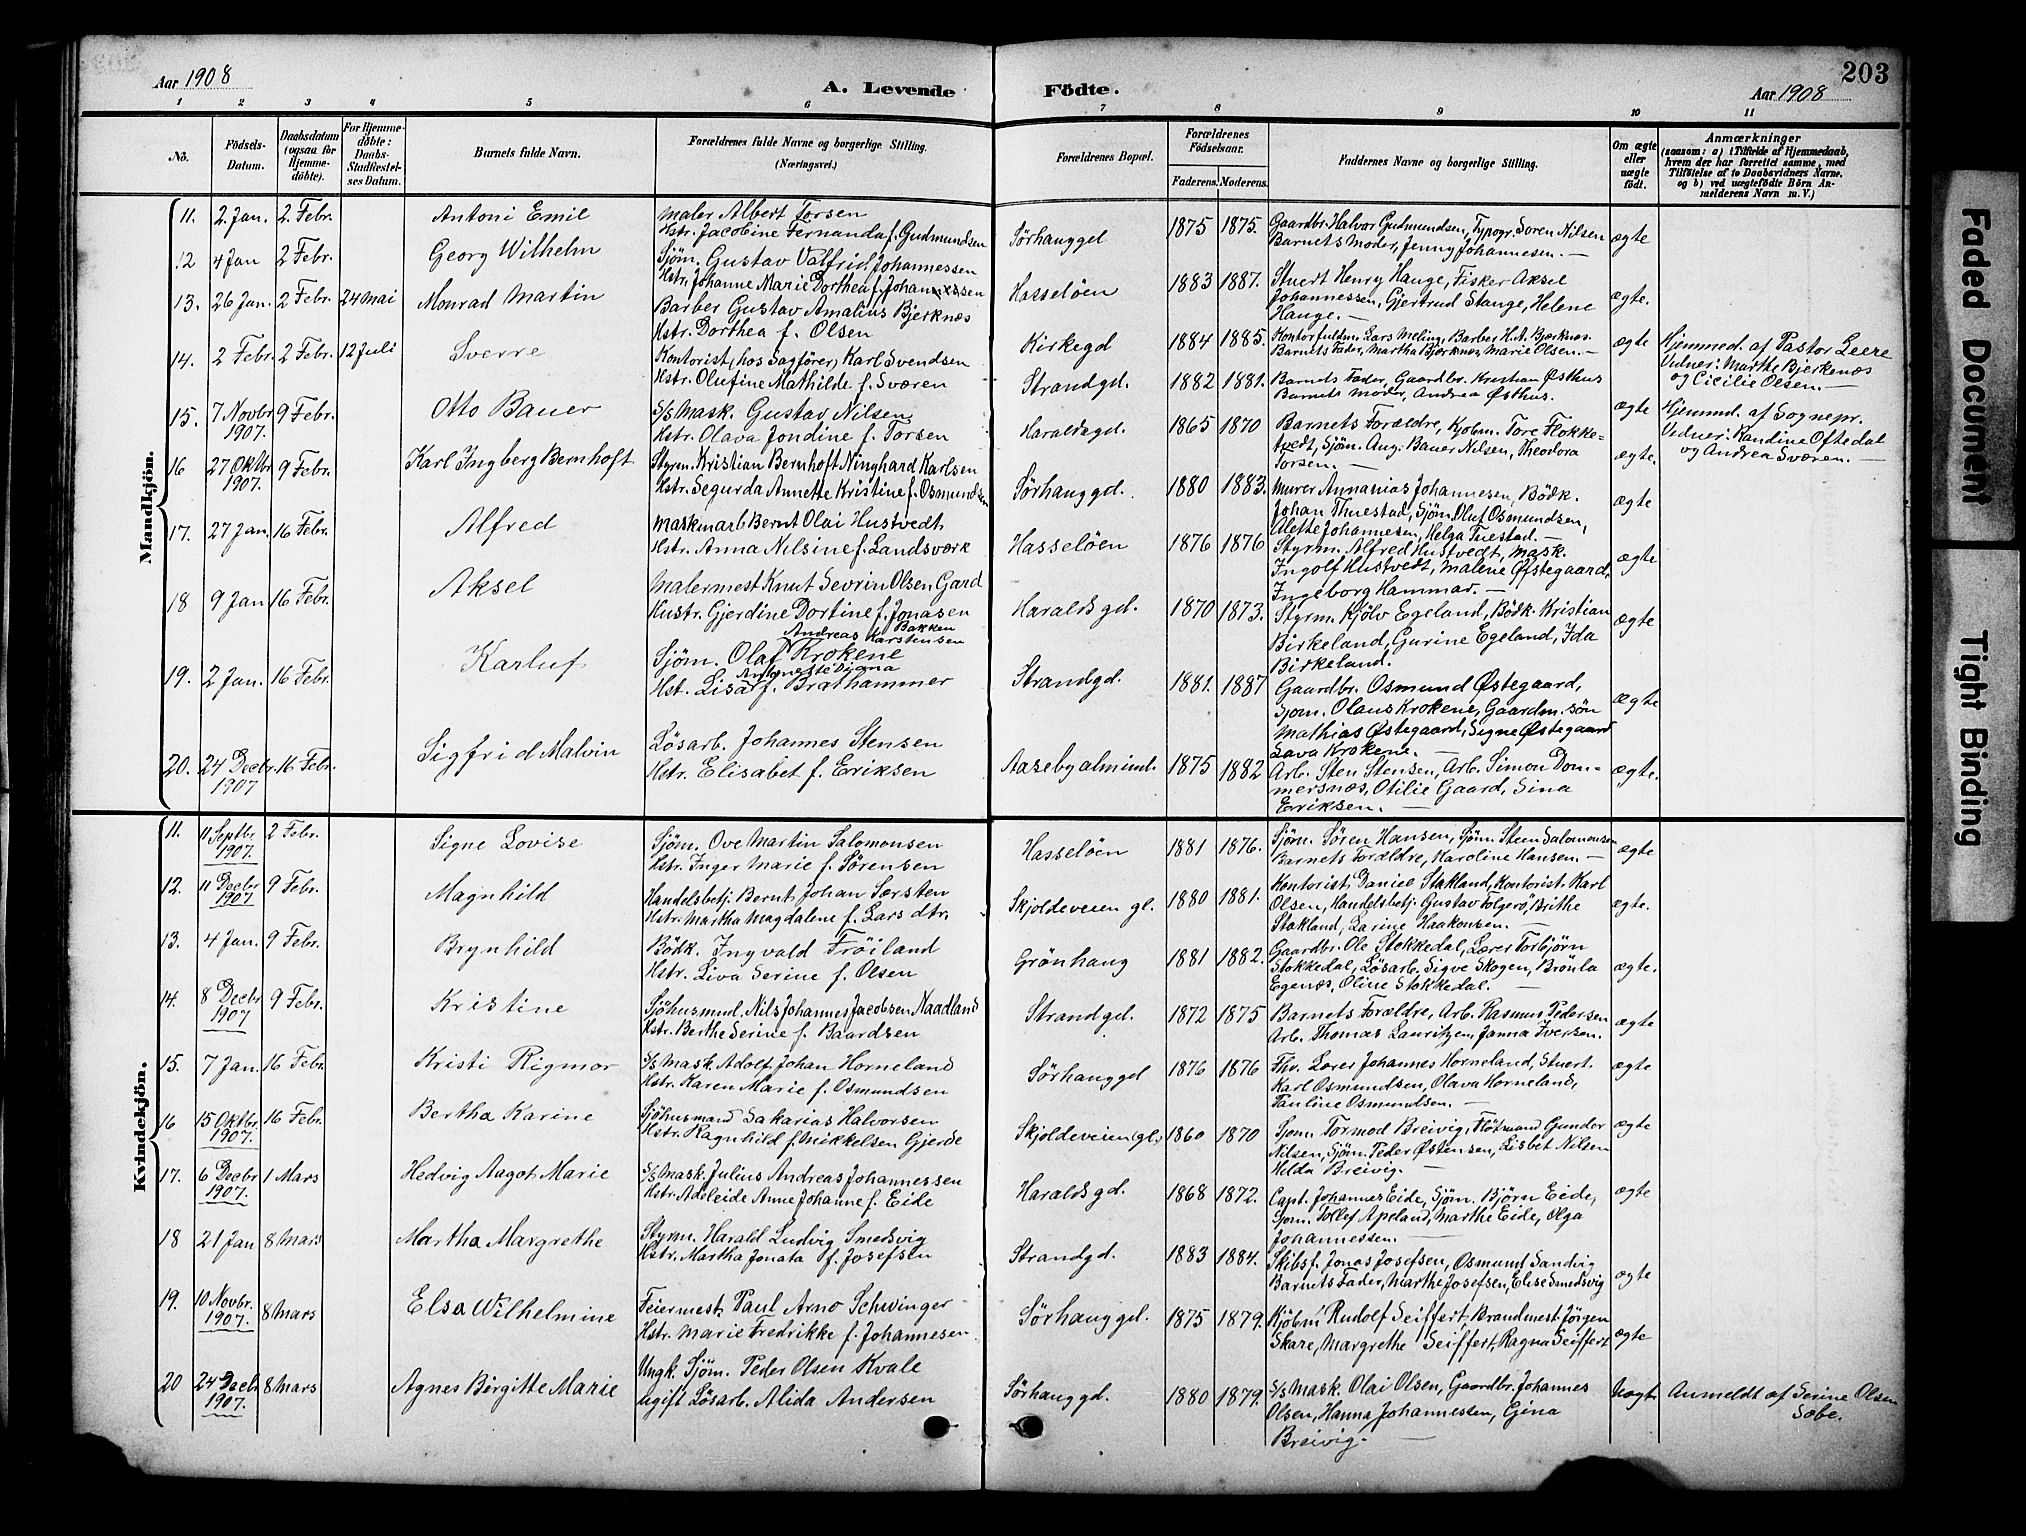 Aar 1908
A. Levende
Fødte.
Aar 1908
203
1 2 3 4 5 6 7 8 9 10 11
No.
Födsels-Datum.
Daabsdatum (ogsaa for Hjemmedöbte).
For Hjemmedöbte: Daabs-Stadfæstelses Datum.
Barnets fulde Navn.
Forældrenes fulde Navne og borgerlige Stilling.
(Næringsvei.)
Forældrenes Bopæl.
Forældrenes Födselsaar.
Faderens. Moderens.
Faddernes Navne og borgerlige Stilling.
Om ægte eller uægte födt.
Anmærkninger
(saasom: a) i Tilfælde af Hjemmedaab,
hvem der har forrettet samme, med
Tilföielse af to Daabsvidners Navne,
og b) ved uægtefödte Börn An-
melderens Navn m. V.)
Mandkjön.
11. 2 Jan. 2 Febr. Antoni Emil
Maler Albert Torsen
Hstr. Jacobine Fernanda f. Gudmundsen
Sörhauggd 1875 1875.
Gaardbr. Halvor Gudmundsen, Typogr. Soren Nilsen
Barnets Moder, Jenny Johannesen. —
ægte
12 4 Jan 2 Febr. Georg Wilhelm
Sjöm. Gustav Valfrid Johannessen
Hstr. Johanne Marie Dorthea f. Johannessen
Hasselöen 1883 1887.
Stuert Henry Hauge, Fisker Aksel
Johannessen, Gjertrud Stange, Helene
Hauge. —
ægte.
13. 26 Jan. 2 Febr. 24 Mai Monrad Martin
Barber Gustav Amalius Bjerknæs
Hstr. Dorthea f. Olsen
Kirkegd 1884 1885.
Kontorfuldm. Lars Meling, Barber H.A. Bjerknæs
Barnets Fader, Martha Bjerknæs, Marie Olsen. —
ægte
Hjemmed. af Pastor Leere
Vidner: Marthe Bjerkenæs
og Cicilie Olsen. —
14. 2 Febr. 2 Febr. 12 Juli Sverre
Kontorist (hos Sagförer) Karl Svendsen
Hstr. Olufine Mathilde f. Sværen
Strandgd. 1882 1881.
Barnets Fader, Gaardbr. Kristian Østhus
Barnets Moder, Andrea Østhus.
ægte
Hjemmd. af Sognepr.
Vidner: Randine Oftedal
og Andrea Sværen. —
15. 7 Novbr 1907. 9 Febr. Otto Bauer
S/S Mask. Gustav Nilsen
Hstr. Olava Jondine f. Torsen
Haraldsgd. 1865 1870
Barnets Forældre, Kjøbm. Tore Flokke-
tvedt, Sjöm. Aug. Bauer Nilsen, Theodora
Torsen. —
ægte.
16 27 Oktbr 1907. 9 Febr. Karl Ingberg Bernhoft
Styrm. Kristian Bernhoft Ninghard Karlsen
Hstr. Segurda Annette Kristine f. Osmundsen
Sörhauggd. 1880 1883.
Murer Annanias Johannesen, Bödk.
Johan Thuestad, Sjöm. Oluf Osmundsen,
Alette Johannesen, Helga Tuestad. —
ægte
17. 27 Jan. 16 Febr. Alfred
Maskinarb. Bernt Olai Hustvedt
Hstr. Anna Nilsine f. Landsværk
Hasselöen 1876 1876
Styrm. Alfred Hustvedt, Mask.
Ingolf Hustvedt, Malene Østegaard,
Ingeborg Hammar. —
ægte
18 9 Jan 16 Febr. Aksel
Malermest Knut Sevrin Olsen Gard
Hustr. Gjerdine Dortine f. Jonasen
Haralds gd. 1870 1873.
Styrm. Kjölv Egeland, Bödk. Kristian
Birkeland, Gurine Egeland, Ida
Birkeland.
ægte
19. 2 Jan. 16 Febr. Karluf
Andreas Karstensen Bakken
Sjöm. Olaf Krokene
Antonette Diana
Hst. Lisa f. Brathammer
Strandgd. 1881. 1887
Gaardbr. Osmund Østegaard,
Sjom. Olaus Krokene, Gaardm. sön
Mathias Østegaard, Signe Østegaard
Lava Krokene. —
ægte
20. 24 Decbr. 1907 16 Febr. Sigfrid Malvin
Lösarb. Johannes Stensen
Hstr. Elisabet f. Eriksen
Aasebyalmind. 1875 1882
Arb. Sten Stensen, Arb. Simon Dom-
mersnæs, Otilie Gaard, Sina
Eriksen. —
ægte.
Kvindekjön.
11. 11 Septbr 1907. 2 Febr. Signe Lovise
Sjöm. Ove Martin Salomonsen
Hstr. Inger Marie f. Sörensen
Hasselöen 1881 1876.
Sjöm. Sören Hansen, Sjöm. Steen Salomonsen
Barnets Forældre, Karoline Hansen. —
ægte
12. 11 Decbr 1907. 9 Febr. Magnhild
Handelsbetj. Bernt Johan Særsten
Hstr. Martha Magdalene f. Lars dtr.
Skjoldeveien gl. 1880 1881.
Kontorist Daniel Stakland, Kontorist Karl
Olsen, Handelsbetj. Gustav Folgerö, Brithe
Stakland, Larine Haakonsen. —
ægte.
13. 4 Jan. 9 Febr. Brynhild
Bödk. Ingvald Fröiland
Hstr. Liva Serine f. Olsen
Grönhaug 1881 1882.
Gaardbr. Ole Stokkedal, Lærer Torbjörn
Stokkedal, Lösarb. Sigve Skogen, Brönla
Egenæs, Oline Stokkedal. —
ægte.
14. 8 Decbr 1907 9 Febr. Kristine
Sjöhusmnd. Nils Johannes Jacobsen Naadland
Hstr. Berthe Serine f. Baardsen
Strandgd. 1872 1875
Barnets Forældre, Arb. Rasmus Pedersen
Arb. Thomas Lauritzen, Janna Iversen.
ægte
15. 7 Jan. 16 Febr. Kristi Rigmor
S/S Mask. Adolf Johan Horneland
Hstr. Karen Marie f. Osmundsen
Sörhauggd 1876 1876
Fhv. Lærer Johannes Horneland, Stuert
Karl Osmundsen, Olava Horneland,
Pauline Osmundsen. —
ægte
16 15 Oktbr. 1907. 16 Febr. Bertha Karine
Sjöhusmand Sakarias Halvorsen
Hstr. Ragnhild f. Mikkelsen Gjerde
Skjoldeveien (gl.) 1860 1870
Sjom. Tormod Breivig, Fløtmand Gunder
Nilsen, Sjöm. Peder Østensen, Lisbet Nilsen
Hilda Breivig. —
ægte
17. 6 Decbr 1907. 1 Mars Hedvig Aagot Marie
S/S Mask. Julius Andreas Johannessen
Hstr. Adeleide Anne Johanne f. Eide
Haraldsgd. 1868 1872.
Capt. Johannes Eide, Sjöm. Björn Eide,
Sjom. Tollef Apeland, Marthe Eide, Olga
Johannessen. —
ægte
18 21 Jan 8 Mars Martha Margrethe
Styrm. Harald Ludvig Smedsvig
Hstr. Martha Jonata f. Josefsen
Strandgd. 1883 1884.
Skibsf. Jonas Josefsen, Osmund Sandvig
Barnets Fader, Marthe Josefsen, Elise Smedsvig
ægte
19. 10 Novbr. 1907. 8 Mars Elsa Wilhelmine
Feiermest. Paul Arno Schwinger
Hstr. Marie Fredrikke f. Johannesen
Sörhauggd. 1875 1879.
Kjöbm Rudolf Seiffert, Brandmest. Jörgen
Skare, Margrethe Seiffert, Ragna Seiffert
ægte
20 24 Decbr 1907. 8 Mars Agnes Birgitte Marie
Ungk. Sjöm. Peder Olsen Kvale
ugift Lösarb. Alida Andersen
Sörhauggd. 1880 1879.
S/S Mask. Olai Olsen, Gaardbr. Johannes
Olsen, Hanna Johannessen, Gjina
Breivig. —
Uægt.
Anmeldt af Serine Olsen
Sæbe.
Faded Document
Tight Binding